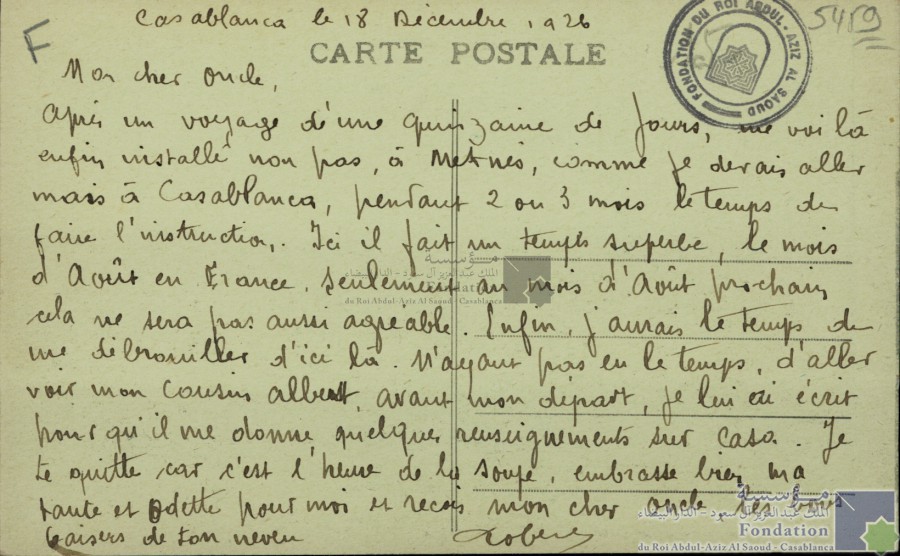 Casablanca le 18 Décembre 1926
F
5459
CARTE POSTALE
FONDATION DU ROI ABDUL-AZIZ AL SAOUD
Mon cher oncle,
Après un voyage d'une quinzaine de jours, me voilà
enfin installé non pas, à Meknès, comme je devais aller
mais à Casablanca, pendant 2 ou 3 mois le temps de
faire l'instruction. Ici il fait un temps superbe, le mois
d'Août en France. Seulement au mois d'Août prochain
cela ne sera pas aussi agréable. Enfin, j'aurais le temps de
me débrouiller d'ici là. N'ayant pas eu le temps, d'aller
voir mon cousin albert, avant mon départ, je lui ai écrit
pour qu'il me donne quelques renseignements sur casa. Je
te quitte car c'est l'heure de la soupe, embrasse bien ma
tante et Odette pour moi et reçois mon cher oncle les bons
baisers de ton neveu
Robert
مؤسسة
الملك عبد العزيز آل سعود - الدار البيضاء
Fondation
du Roi Abdul-Aziz Al Saoud - Casablanca
مؤسسة
الملك عبد العزيز آل سعود - الدار البيضاء
Fondation
du Roi Abdul-Aziz Al Saoud - Casablanca